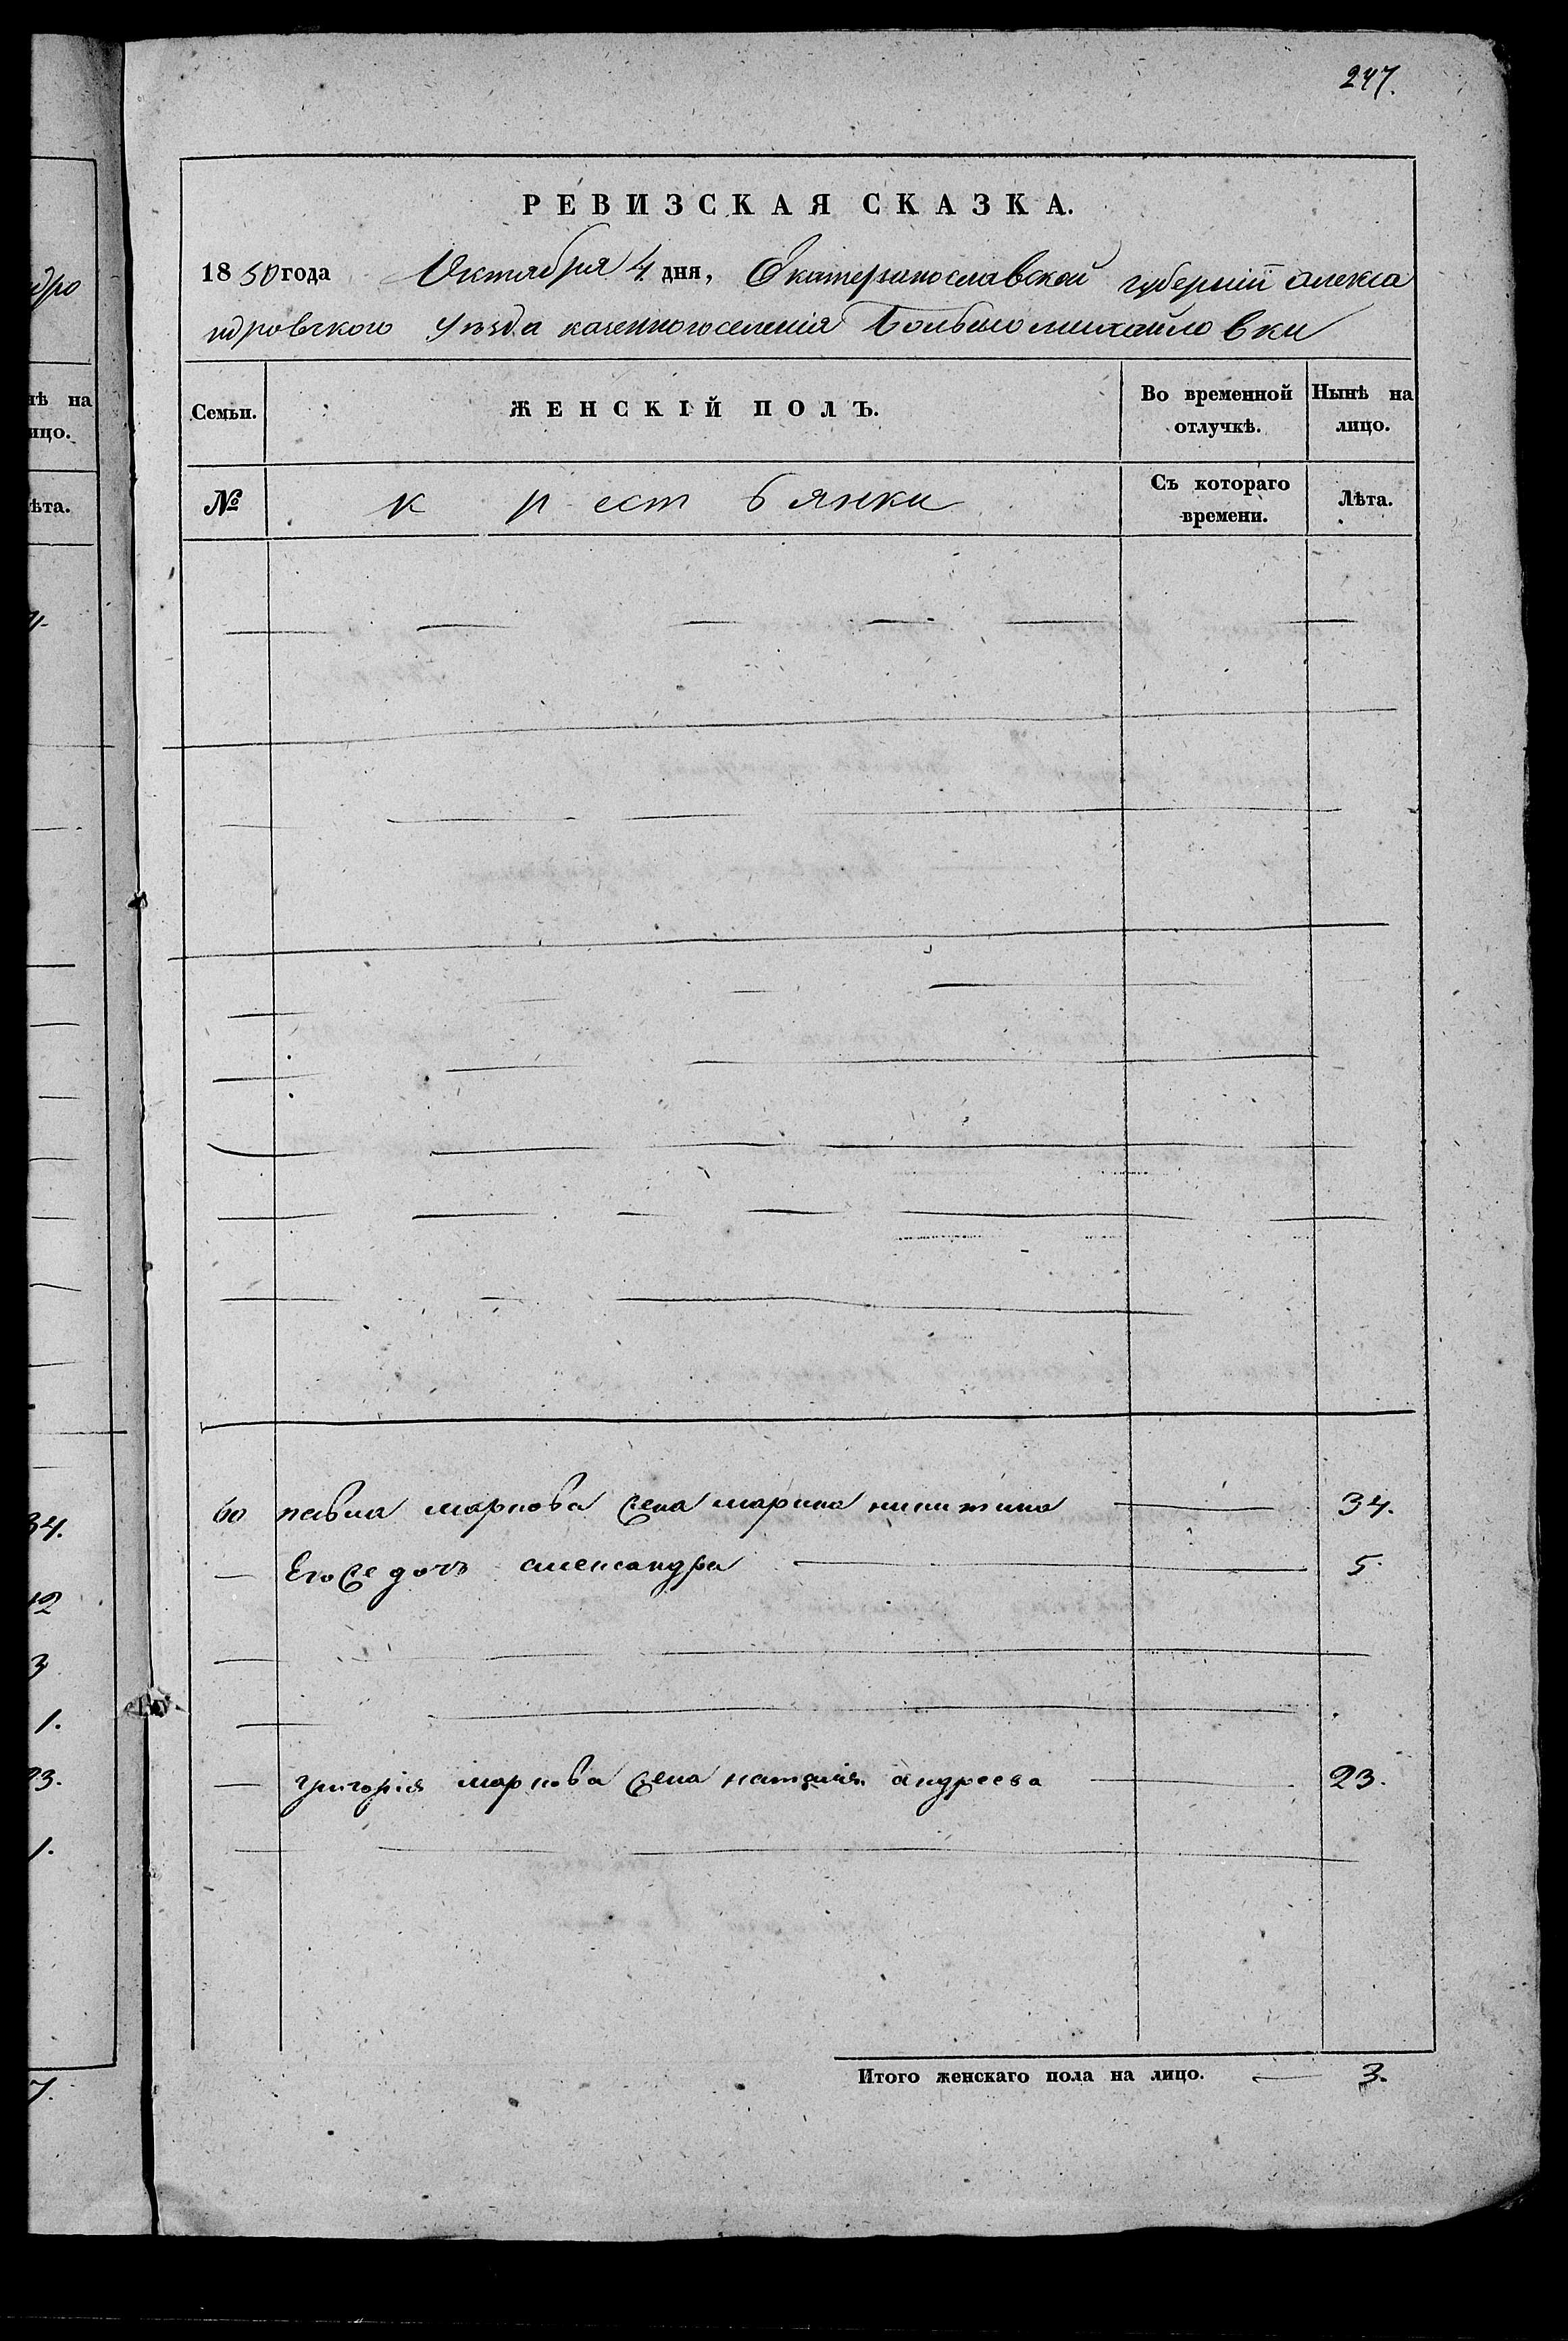 247.
РЕВИЗСКАЯ СКАЗКА.
1850 года Октября 4 дня, Екатеринославской губернiи алекса
ндровского уѣзда казенного селенiя Большомихайловки
Семьи. ЖЕНСКIЙ ПОЛЪ. Во временной отлучкѣ. Нынѣ на лицо.
№ крестьянки Съ котораго времени. Лѣта.
60 павла маркова жена марина никитина 34.
Его же дочь александра 5
григорiя маркова жена наталiя андреева 23.
Итого женскаго пола на лицо. 3.
дро
нѣ на
ицо.
ѣта.
34.
12
3
1.
23.
1.
7.